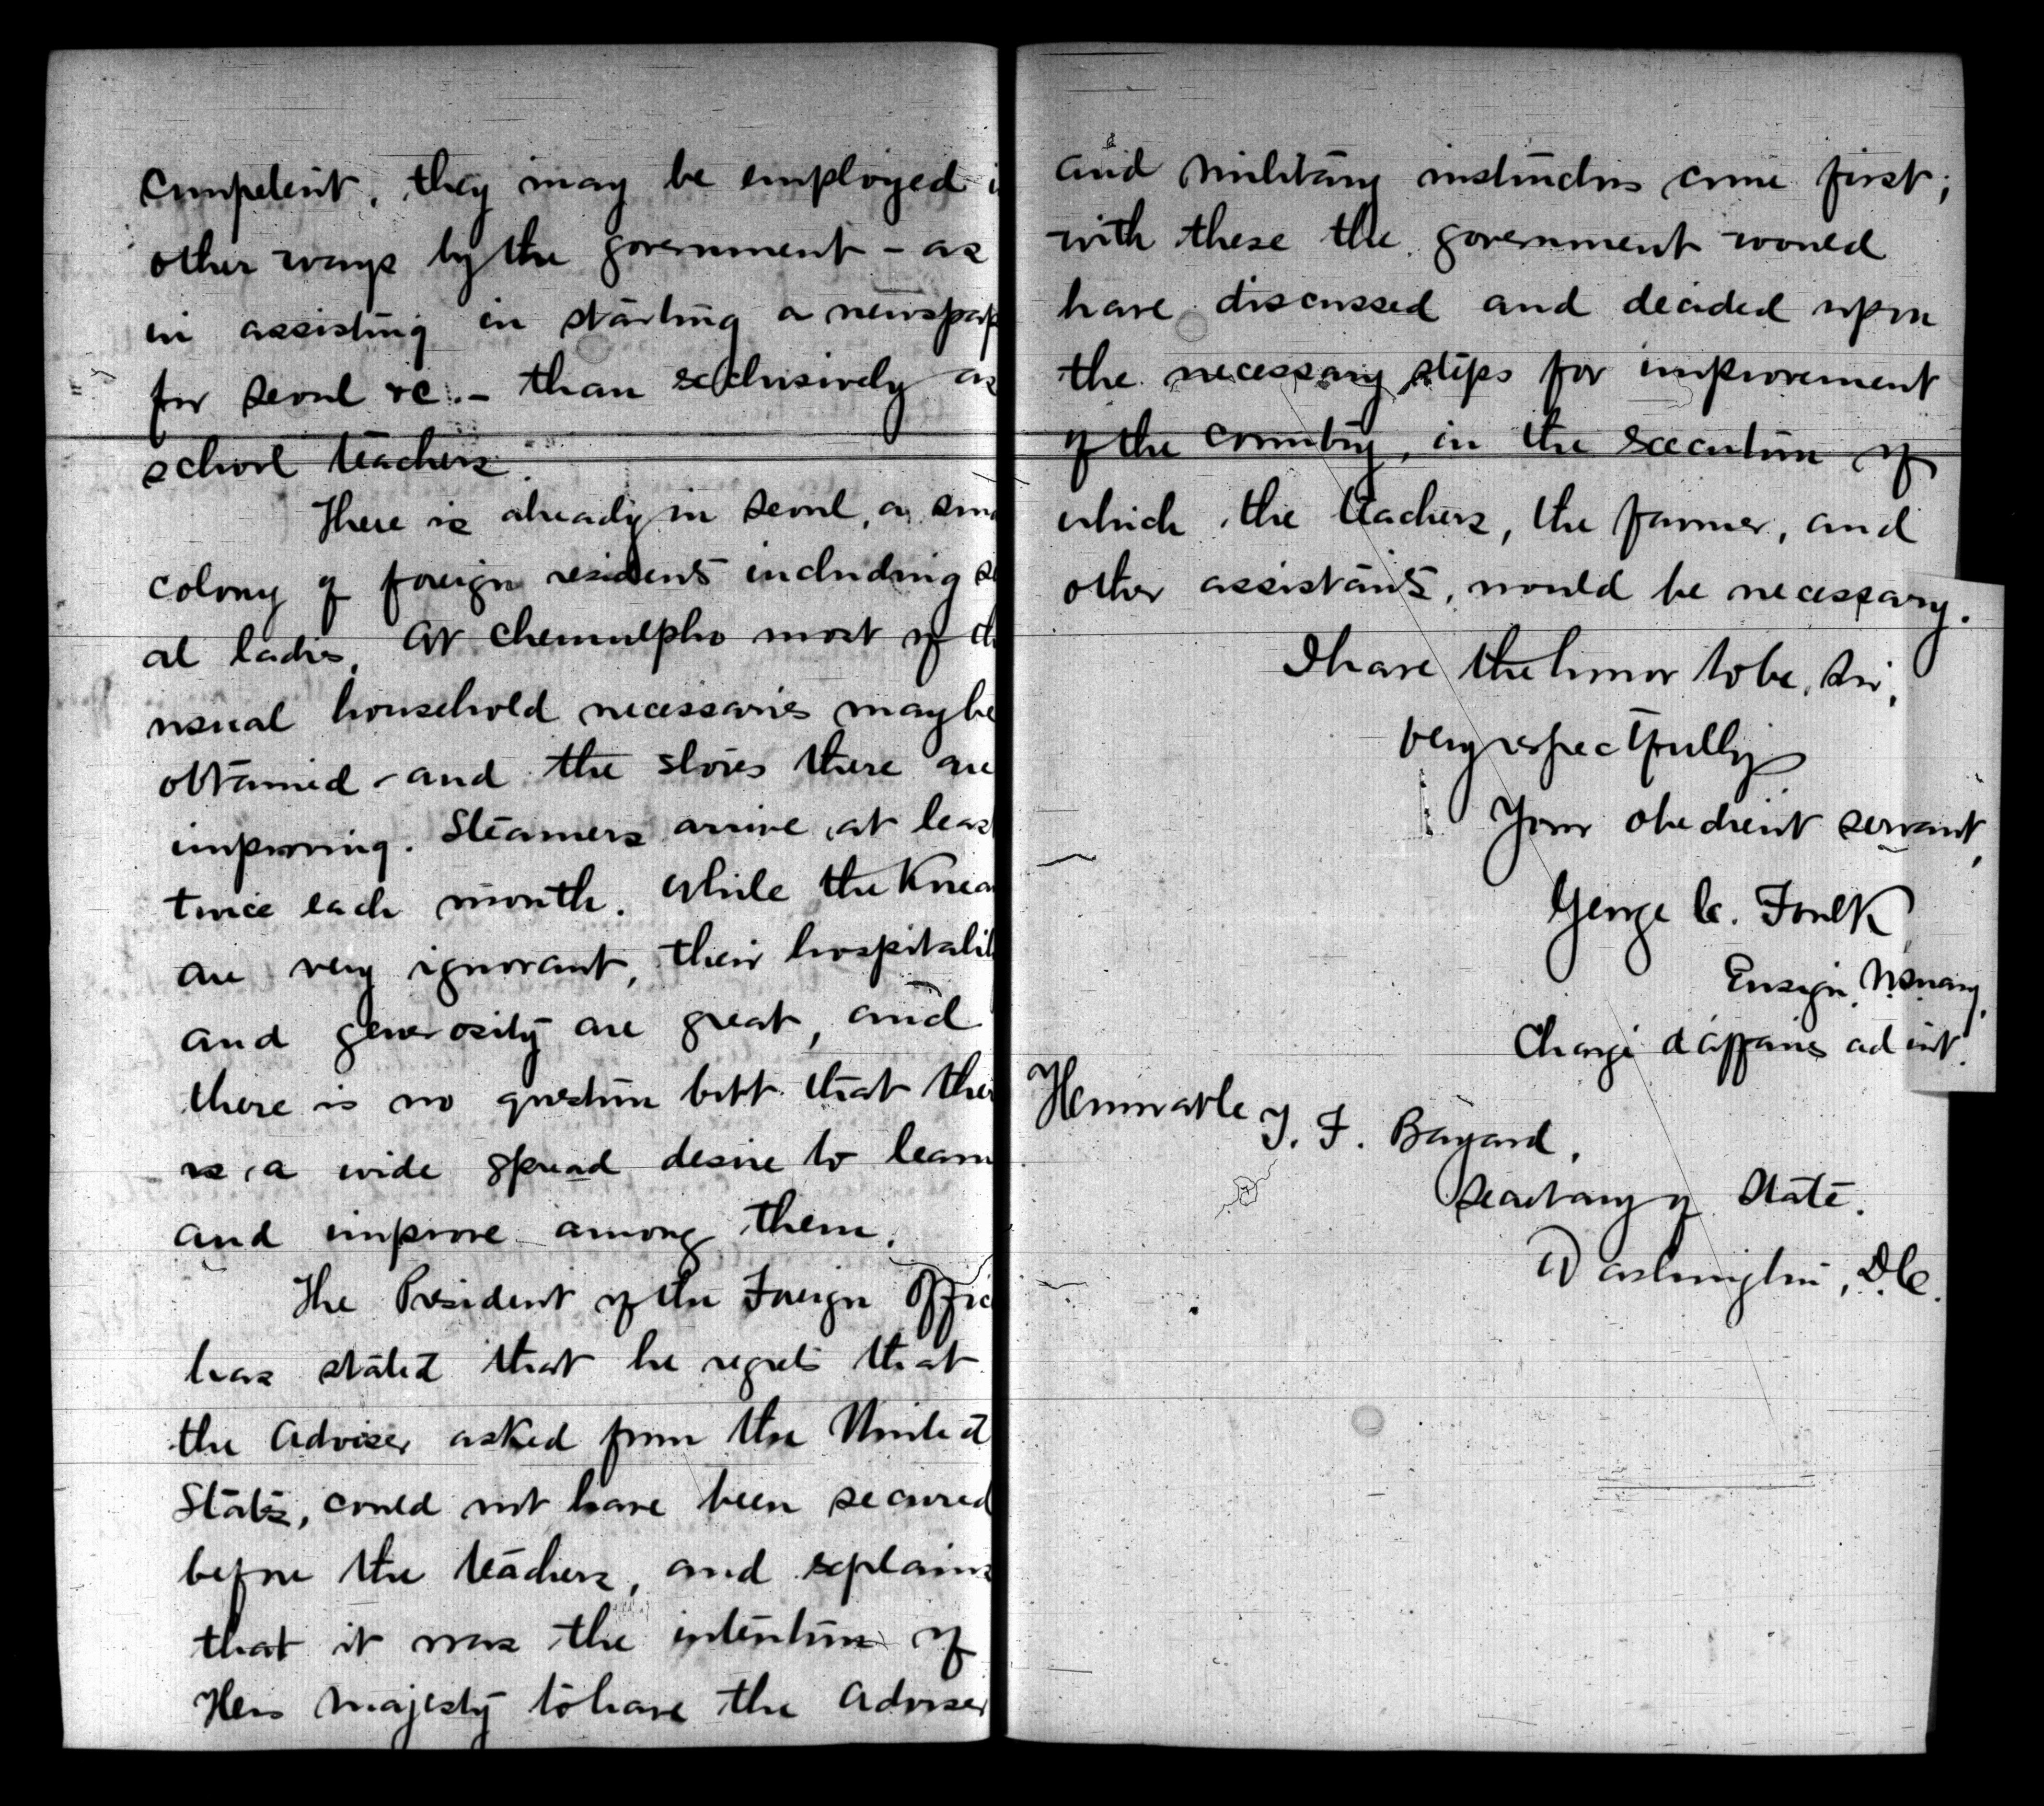 competent, they may be employed i
other ways by the government - as
in assisting in starting a newspap
for Seoul &c. - than exclusively as
school teachers.
There is already in Seoul, a sma
colony of foreign residents including se
al ladies. At Chemulpho most of th
usual household necessaries may be
obtained - and the stores there are
improving. Steamers arrive at leas
twice each month. While the Korea
are very ignorant, their hospitalit
and generosity are great, and
there is no question but that ther
is a wide spread desire to learn
and improve among them.
The President of the Foreign Offic
has stated that he regrets that
the Adviser asked from the United
States, could not have been secured
before the teachers, and explains
that it was the intention of
His Majesty to have the Adviser
and military instructors come first;
with these the government would
have discussed and decided upon
the necessary steps for improvement
of the country, in the execution of
which the teachers, the farmer, and
other assistants, would be necessary.
I have the honor to be, Sir,
Very respectfully
Your obedient servant,
George C. Foulk
Ensign, U.S. Navy,
Chargé d'affaires ad int.
Honorable T. F. Bayard,
Secretary of State.
Washington, D.C.